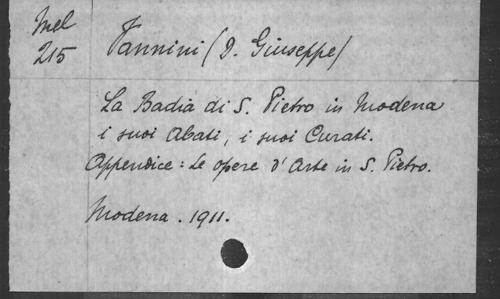 Mel
215
Vannini (D. Giuseppe)
La Badia di S. Pietro in Modena
i suoi Abati, i suoi Curati.
Appendice: Le opere d'Arte in S. Pietro.
Modena. 1911.